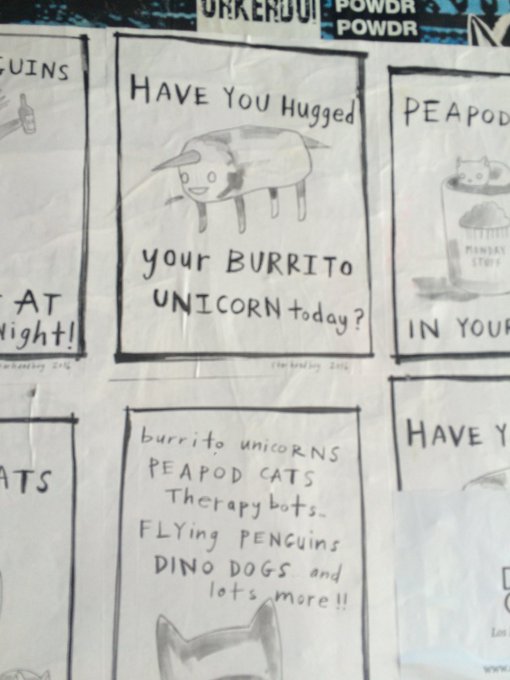 POWDR
POWDR
GUINS
AT
Night!
HAVE YOU Hugged
your BURRITO
UNICORN today?
2016
PEAPOD
MONDAY
STUFF
IN YOUR
ATS
burrito unicoRNS
PEAPOD CATS
Therapy bots..
FLYing PENGuins
DINO DOGS and
lots more!!
HAVE Y
Los
www.